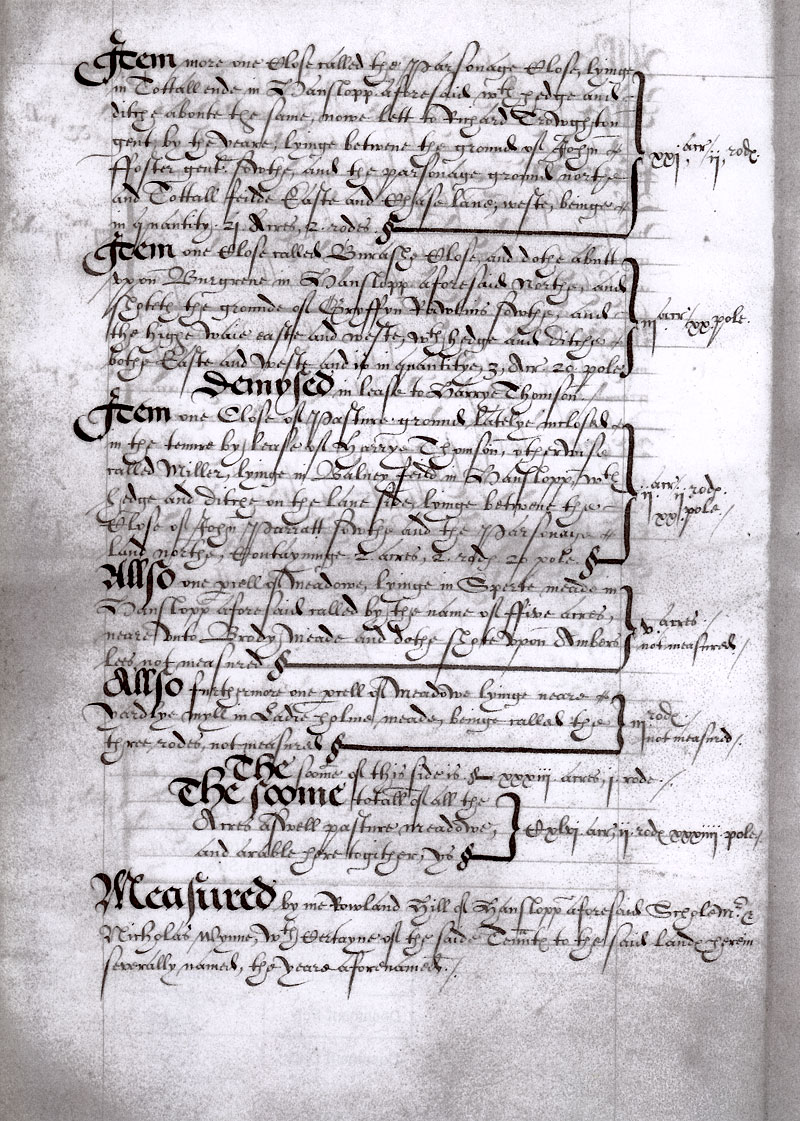 Item more one Close called the Parsonage Close, lyinge
in Tottall ende in Hanslopp aforesaid wth hedge and
ditche aboute the same, nowe lett to Richard Trowghton
gent by the yeare, lyinge betwene the ground of John
ffoster gent sowthe, and the parsonage ground northe
and Tottall feilde Easte and Chase lane, weste, beinge
in quantity. 21 Acres, 2. rodes.
xxi, acr ii, rodx.
Item one Close called Close, and dothe abutt
vpon Burgrene in Hanslopp aforesaid Northe, and
the grounde of Gryffyn sowthe, and
the highe waie easte and weste, wth hedge and ditche
bothe Easte and Weste and is in quantitye, 3, Acr 20 pole
iii acr xx pole.
Demysed in lease to Harrye Thomson.
Item one Close of Pasture ground latelye inclosed
in the tenure by lease of Harrye Thomson, otherwise
called Miller, lyinge in feild in Hanslopp, wth
hedge and ditche on the lane side, lyinge betwene the
Close of John Parratt sowthe and the Parsonage
land northe, Contayninge 2. acres, 2. rodx 20 pole.
ii, acr, ii, rodx, xx pole.
Allso one pcell of Meadowe, lyinge in meade in
Hanslopp aforesaid called by the name of ffive acres,
neare vnto Meade and dothe shote vpon Ambers
lees not measured
v. acres not measured
Allso furthermore one pcell of Meadowe lyinge neare
yardlye myll in holme, meade, beinge called the
three rodes, not measured
iii rodx not measured
The some of this side is xxxiii acres, i, rode.
The soome totall of all the
Acres aswell pasture meadowe,
and arable here togither, ys
Cxlvi acr, ii rodx xxxiiii pole
Measured by me Rowland Hill of Hanslopp aforesaid Scholemr. &
Nicholas Wynne, wth Certayne of the saide Tennts to the said landx herein
severally named, the yeare aforenamed.